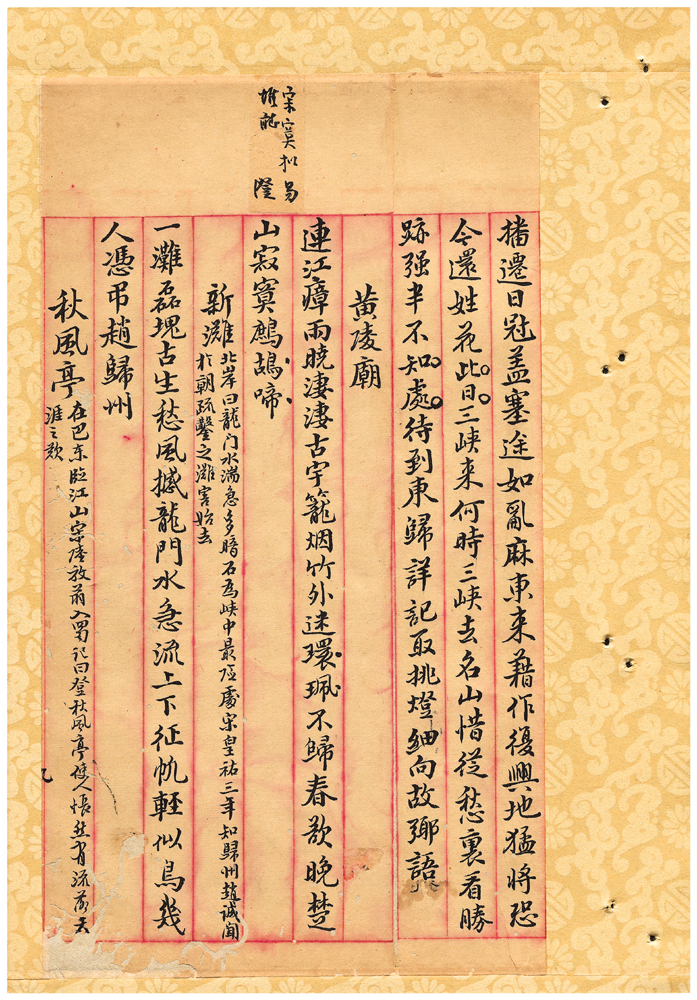 宋寞拟易
播遷日冠盖塞途如亂麻東来藉作復興地猛將恐
令還姓花此日三峽来何時三峽去名山惜從愁裏看勝
跡强半不知處待到東歸詳記取挑燈細向故鄉語
黄陵廟
連江瘴雨曉淒淒古宇籠烟竹外迷環珮不歸春欲晚楚
山寂寞鷓鴣啼
新灘 北岸曰龍门水湍急多暗石爲峽中最險處宋皇祐三年知歸州趙諴聞
於朝疏鑿之灘害始去
一灘磊塊古生愁風撼龍門水急流上下征帆輕似鳥幾
人憑弔趙歸州
秋風亭 在巴东臨江山宋陸放翁入蜀记曰登秋風亭使人悵然有流落天
涯之歎